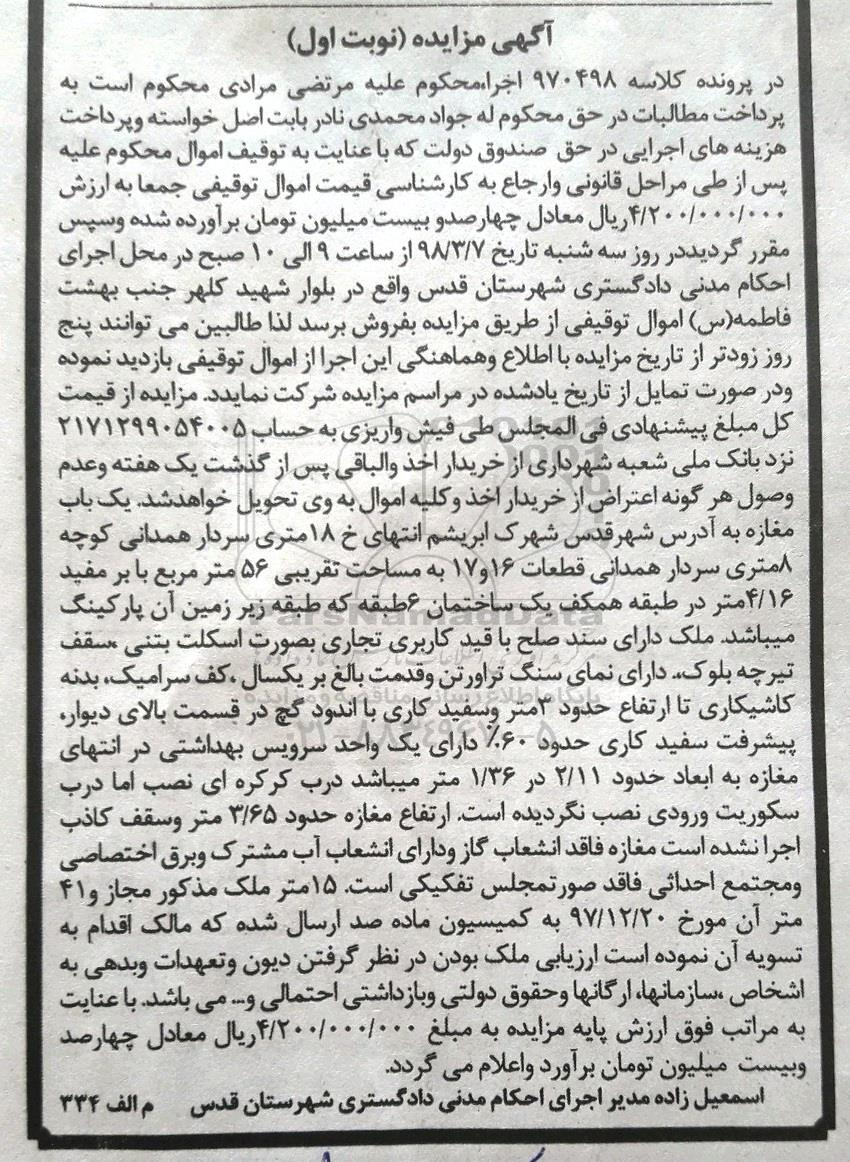 آگهی مزایده (نوبت اول)
در پرونده کلاسه ۹۷۰۴۹۸ اجرا،محکوم علیه مرتضی مرادی محکوم است به
پرداخت مطالبات در حق محکوم له جواد محمدی نادر بابت اصل خواسته وپرداخت
هزینه های اجرایی در حق صندوق دولت که با عنایت به توقیف اموال محکوم علیه
پس از طی مراحل قانونی وارجاع به کارشناسی قیمت اموال توقیفی جمعا به ارزش
۴/۲۰۰/۰۰۰/۰۰۰ریال معادل چهارصدو بیست میلیون تومان برآورده شده وسپس
مقرر گردیددر روز سه شنبه تاریخ ۹۸/۳/۷ از ساعت ۹ الی ۱۰ صبح در محل اجرای
احکام مدنی دادگستری شهرستان قدس واقع در بلوار شهید کلهر جنب بهشت
فاطمه(س) اموال توقیفی از طریق مزایده بفروش برسد لذا طالبین می توانند پنج
روز زودتر از تاریخ مزایده با اطلاع وهماهنگی این اجرا از اموال توقیفی بازدید نموده
ودر صورت تمایل از تاریخ یادشده در مراسم مزایده شرکت نمایدد. مزایده از قیمت
کل مبلغ پیشنهادی فی المجلس طی فیش واریزی به حساب ۲۱۷۱۲۹۹۰۵۴۰۰۵
نزد بانک ملی شعبه شهرداری از خریدار اخذ والباقی پس از گذشت یک هفته وعدم
وصول هر گونه اعتراض از خریدار اخذ وکلیه اموال به وی تحویل خواهدشد. یک باب
مغازه به آدرس شهرقدس شهرک ابریشم انتهای خ ۱۸متری سردار همدانی کوچه
۸متری سردار همدانی قطعات ۱۶و۱۷ به مساحت تقریبی ۵۶ متر مربع با بر مفید
۴/۱۶متر در طبقه همکف یک ساختمان ۶طبقه که طبقه زیر زمین آن پارکینگ
میباشد. ملک دارای سند صلح با قید کاربری تجاری بصورت اسکلت بتنی ،سقف
تیرچه بلوک،. دارای نمای سنگ تراورتن وقدمت بالغ بر یکسال ،کف سرامیک، بدنه
کاشیکاری تا ارتفاع حدود ۳متر وسفید کاری با اندود گچ در قسمت بالای دیوار،
پیشرفت سفید کاری حدود ۶۰٪ دارای یک واحد سرویس بهداشتی در انتهای
مغازه به ابعاد حدود ۲/۱۱ در ۱/۳۶ متر میباشد درب کرکره ای نصب اما درب
سکوریت ورودی نصب نگردیده است. ارتفاع مغازه حدود ۳/۶۵ متر وسقف کاذب
اجرا نشده است مغازه فاقد انشعاب گاز ودارای انشعاب آب مشترک وبرق اختصاصی
ومجتمع احداثی فاقد صورتمجلس تفکیکی است. ۱۵متر ملک مذکور مجاز و۴۱
متر آن مورخ ۹۷/۱۲/۲۰ به کمیسیون ماده صد ارسال شده که مالک اقدام به
تسویه آن نموده است ارزیابی ملک بودن در نظر گرفتن دیون وتعهدات وبدهی به
اشخاص ،سازمانها، ارگانها وحقوق دولتی وبازداشتی احتمالی و... می باشد. با عنایت
به مراتب فوق ارزش پایه مزایده به مبلغ ۴/۲۰۰/۰۰۰/۰۰۰ریال معادل چهارصد
وبیست میلیون تومان برآورد واعلام می گردد.
اسمعیل زاده مدیر اجرای احکام مدنی دادگستری شهرستان قدس م الف ۳۳۴
ParsNamadData